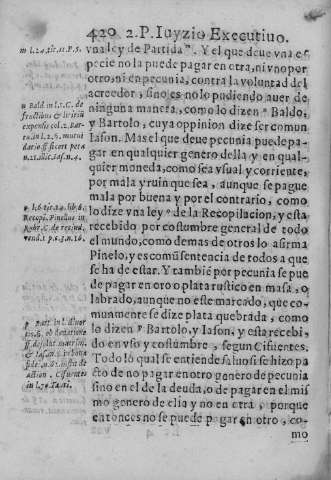 420 2.P. Iuyzio Executiuo.
vna ley de Partida m. Y el que deue vna es
pecie no la puede pagar en otra, ni vno por
otro, ni en pecunia, contra la voluntad del
acreedor, sino es no lo pudiendo auer de
ninguna manera, como lo dizen n Baldo,
y Bartolo, cuya oppinion dize ser comun
Iason. Mas el que deue pecunia puede pa-
gar en qualquier genero della y en qual-
quier moneda, como sea vsual y corriente,
por mala y ruin que sea, aunque se pague
mala por buena y por el contrario, como
lo dize vna ley o de la Recopilacion, y esta
recebido por costumbre general de todo
el mundo, como demas de otros lo afirma
Pinelo, y es comũ sentencia de todos a que
se ha de estar. Y tambien por pecunia se pue
de pagar en oro o plata rustico en masa, o
labrado, aunque no este marcado, que co-
munmente se dize plata quebrada, como
lo dizen p Bartolo, y Iason, y esta recebi,
do en vso y costumbre, segun Cifuentes.
Todo lo qual se entiende saluo si se hizo pa
cto de no pagar en otro genero de pecunia
sino en el de la deuda, o de pagar en el mis
mo genero de ella y no en otra, porque
entonces no se puede pagar en otro, co-
mo
m l.24.tit.11.P.5.
n Bald. in l.1.C. de
fructibus &
expensis col.2. Bar.
in l.2.§.
dario ff. si cert. peta
n.21. Iasõ n.4.
Recopi. Pinelus in
Rubr. C. de rescind.
vend. 1.p.
p Bart.
ff.
& Iason
n.
Cifuentes